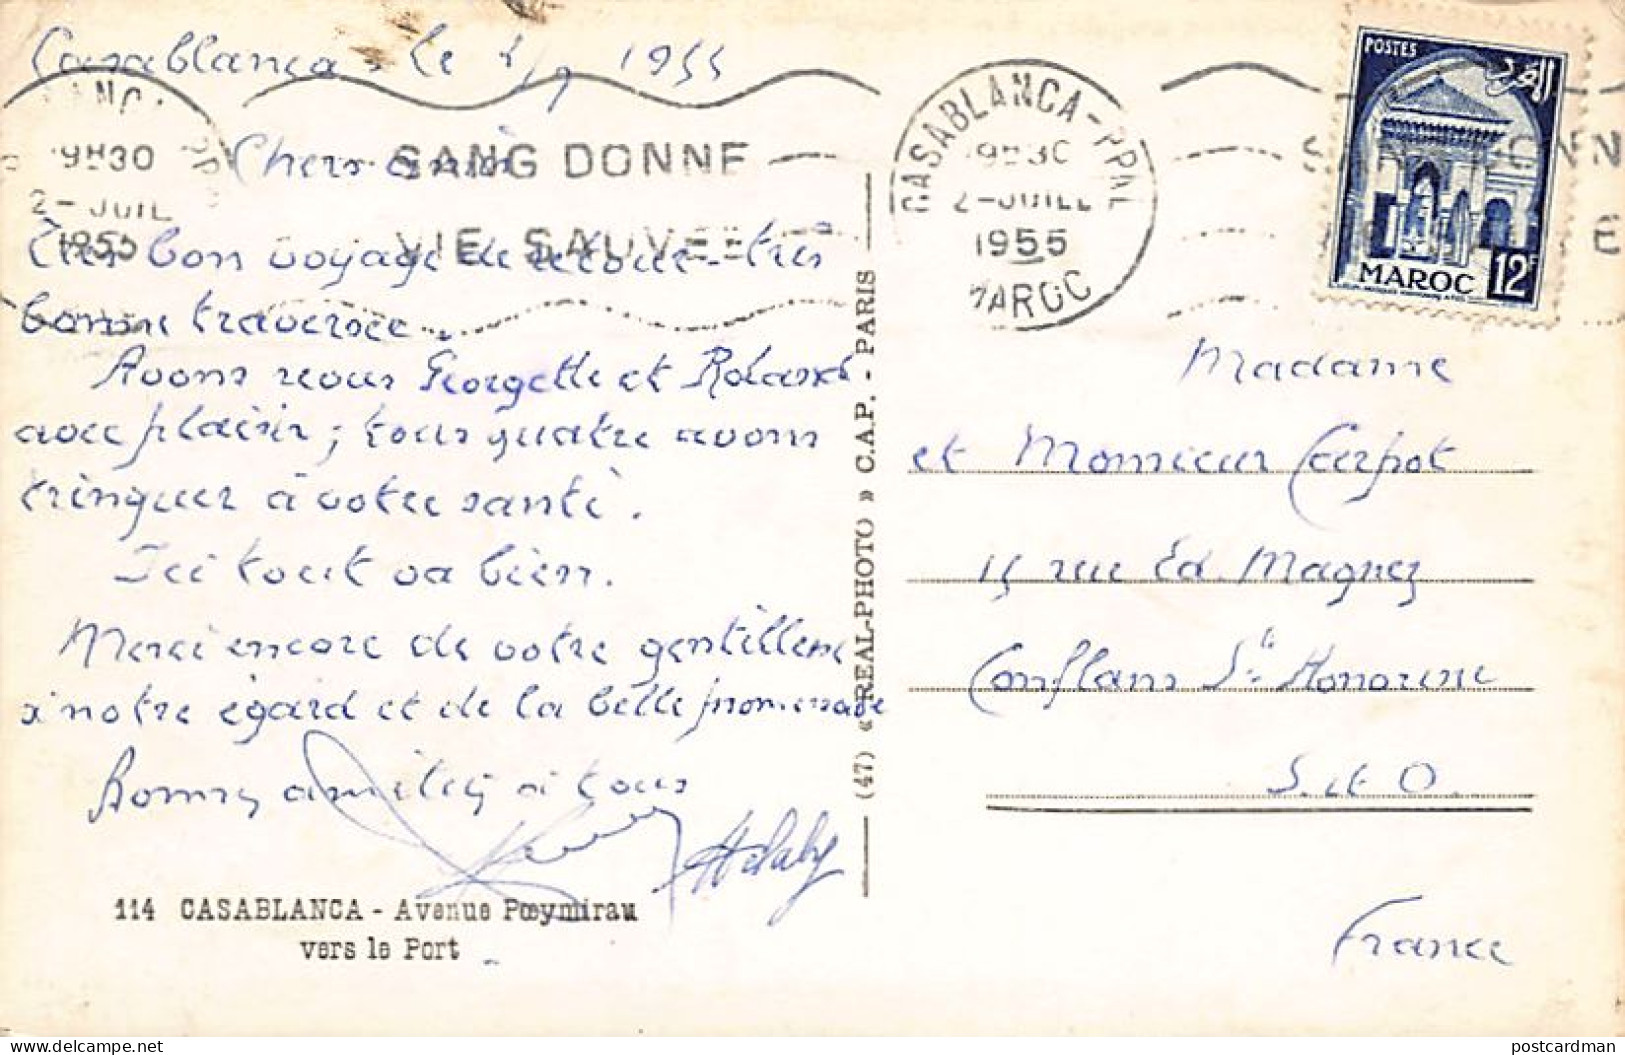 Casablanca le 1/7 1955
Chers amis
Très bon voyage de retour - très
bonne traversée.
Avons revus Georgette et Roland
avec plaisir; tous quatre avons
trinquer à votre santé.
Ici tout va bien.
Merci encore de votre gentillesse
à notre égard et de la belle promenade
Bonnes amitiés à tous
114 CASABLANCA - Avenue Pœymirau
vers le Port
9H30
2 - JUIL
1955
SANG DONNE
VIE SAUVEE
CASABLANCA-PPAL
9H30
2-JUILL
1955
MAROC
(47) « REAL-PHOTO » C.A.P. - PARIS
POSTES
المغرب
MAROC 12F
Madame
et Monsieur Carpot
15 rue Ed. Magnez
Conflans Ste Honorine
S. et O.
France
postcardman